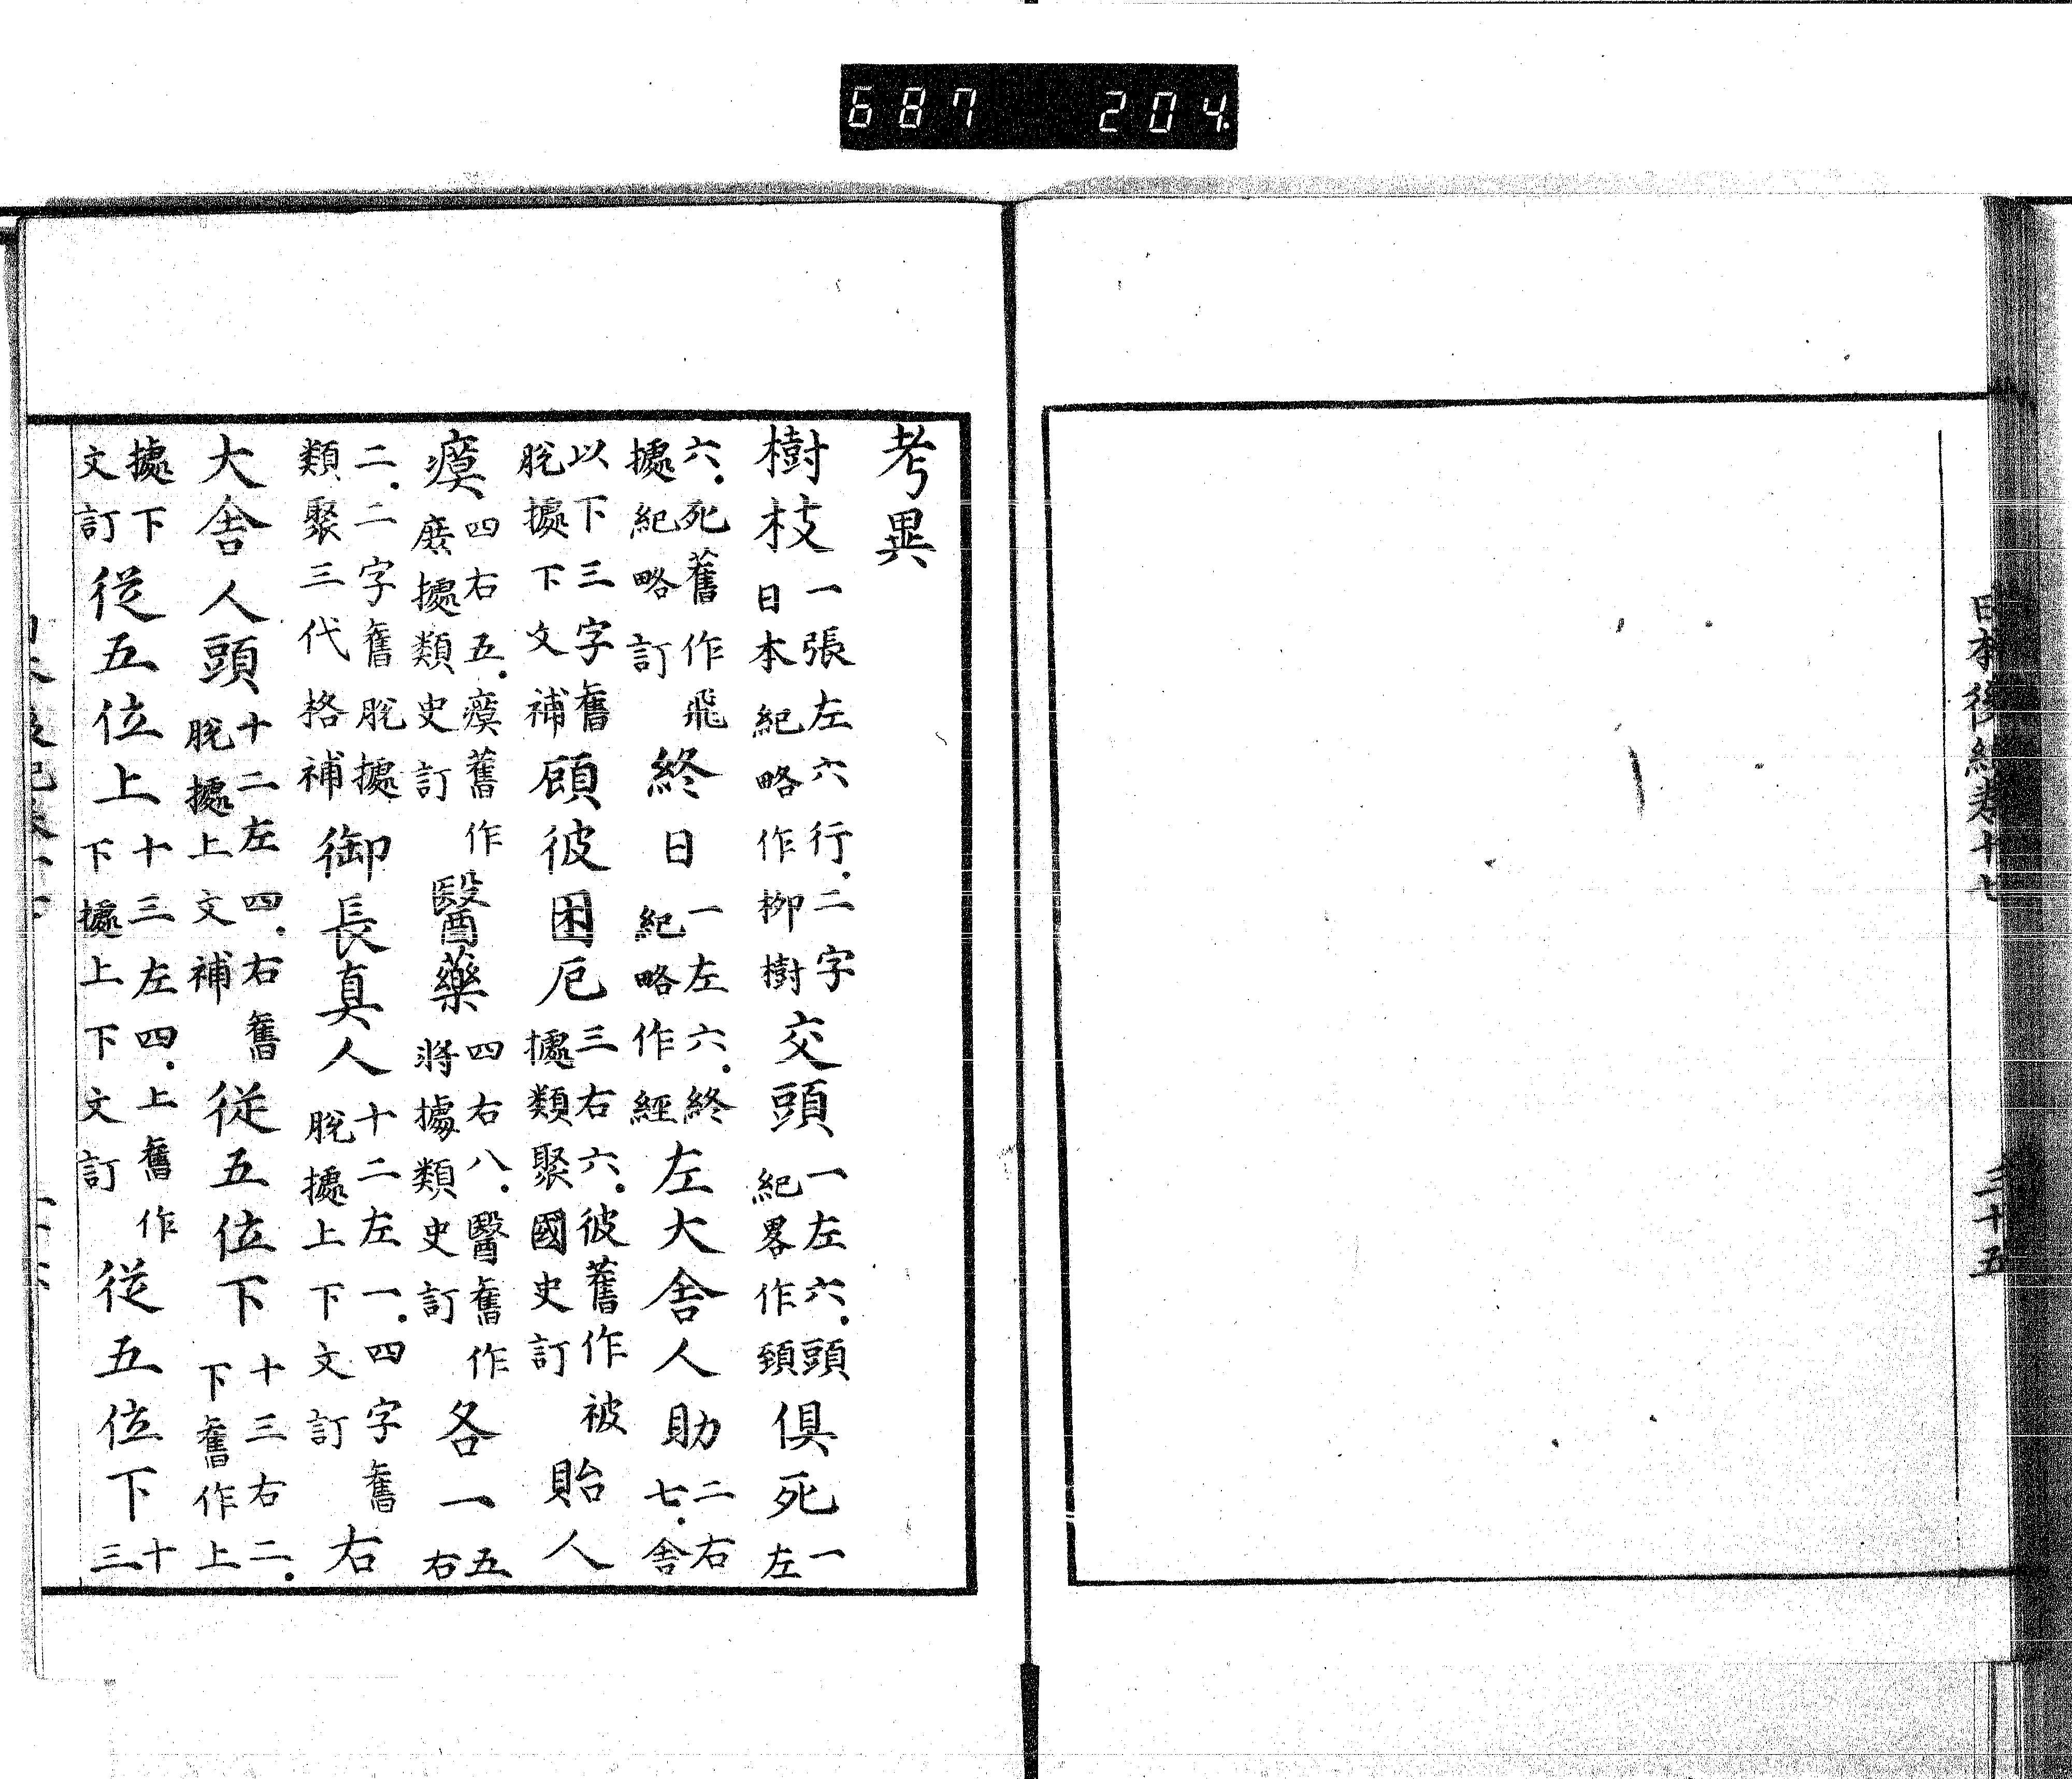 687 204
日本後紀卷十七 三十五
考異
樹枝一張左六行.二字日本紀略作柳樹交頭一左六.頭紀畧作頚俱死一左
六.死舊作飛據紀略訂終日一左六.終紀略作經左大舍人助二右七.舍
以下三字舊脫據下文補顧彼困厄三右六.彼舊作被據類聚國史訂貽人
瘼四右五.瘼舊作據類史訂醫藥四右八.醫舊作將據類史訂各一五右
二.二字舊脫據類聚三代格補御長真人十二左一.四字舊脫據上下文訂右
大舍人頭十二左四.右舊脫據上文補從五位下十三右二.下舊作上
據下文訂從五位上十三左四.上舊作下據上下文訂從五位下十三